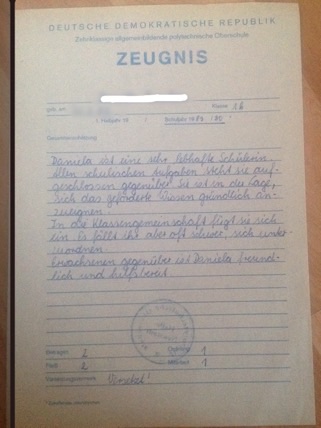 DEUTSCHE DEMOKRATISCHE REPUBLIK
Zehnklassige allgemeinbildende polytechnische Oberschule
ZEUGNIS
geb. am Klasse 1b
1. Halbjahr 19 / Schuljahr 1989 /90
Gesamteinschätzung:
Daniela ist eine sehr lebhafte Schülerin.
Allen schulischen Aufgaben steht sie auf-
geschlossen gegenüber. Sie ist in der Lage,
sich das geforderte Wissen gründlich an-
zueignen.
In die Klassengemeinschaft fügt sie sich
ein. Es fällt ihr aber oft schwer, sich unter-
zuordnen.
Erwachsenen gegenüber ist Daniela freund-
lich und hilfsbereit.
Betragen 2 Ordnung 1
Fleiß 2 Mitarbeit 1
Versetzungsvermerk: Versetzt